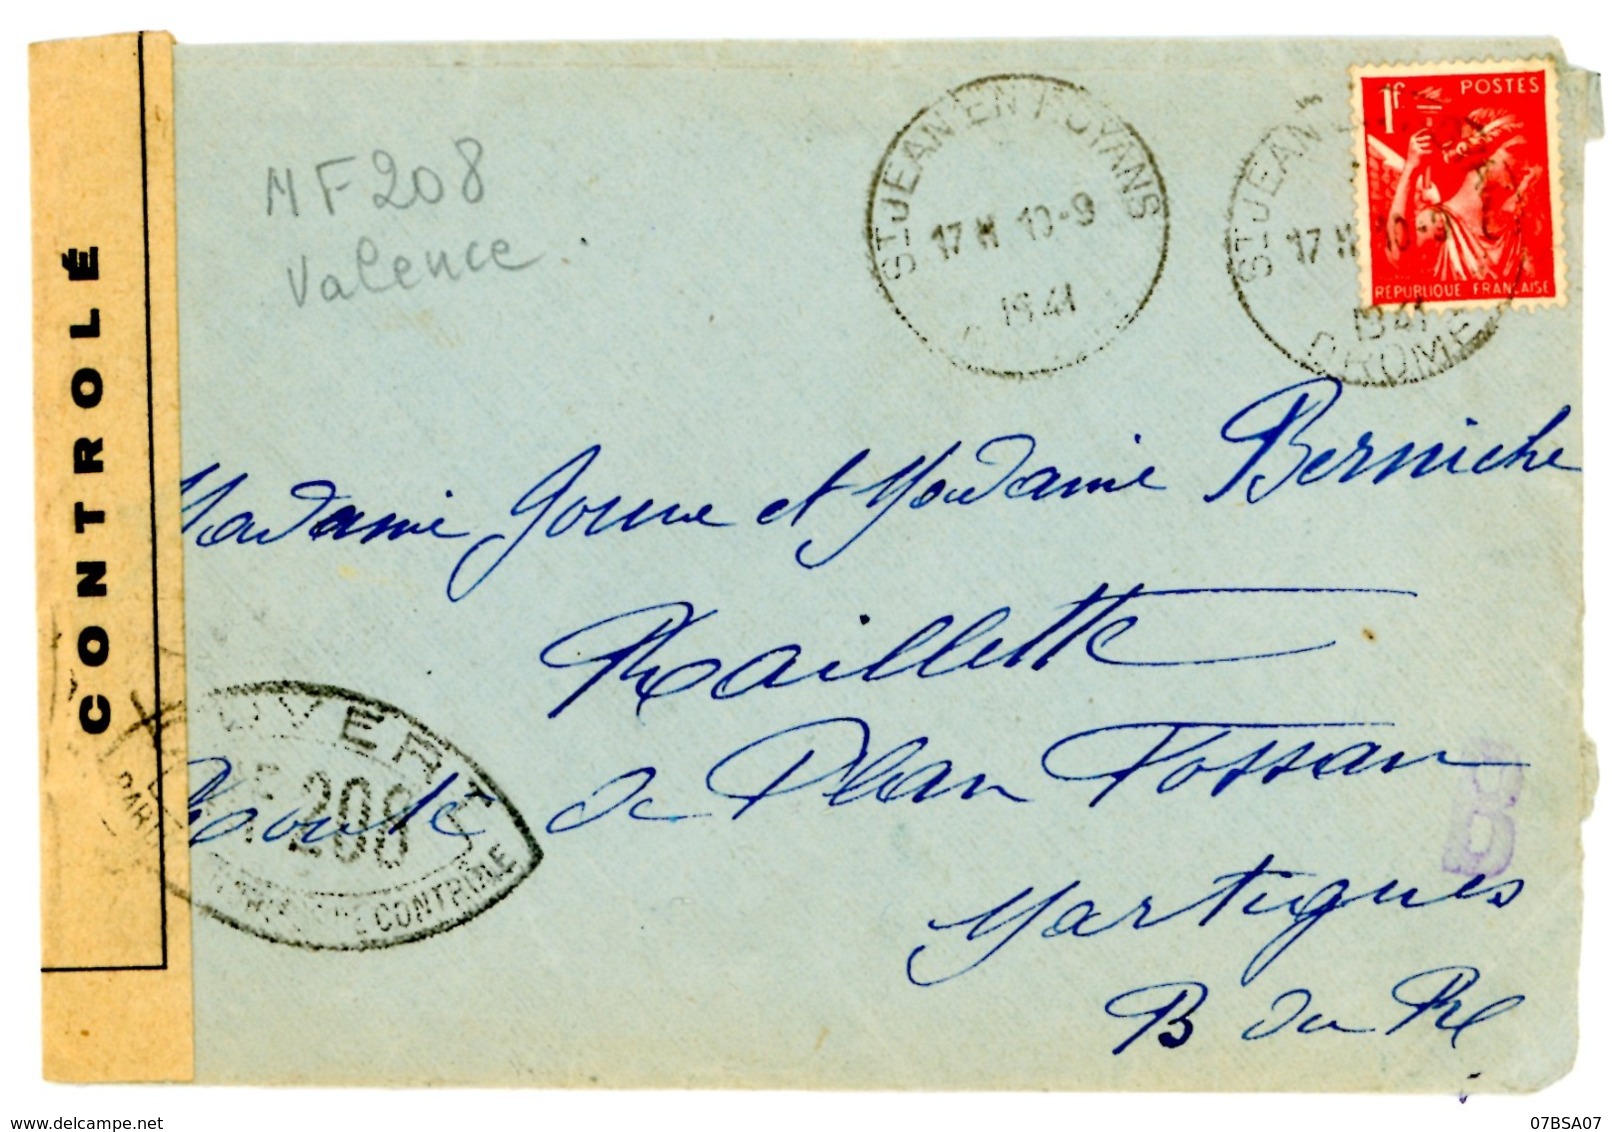 CONTROLÉ
MF208
Valence.
ST-JEAN EN ROYANS
17 H 10-9
1941
1F POSTES
REPUBLIQUE FRANCAISE
ST-JEAN
17 H 10-9
1941
DROME
Madame Jonne et Madame Berniche
Raillette
Route de Plan Fossan
Martigues
B du Rh
OUVERT
208
PAR DE CONTROLE
delcampe.net
07BSA07